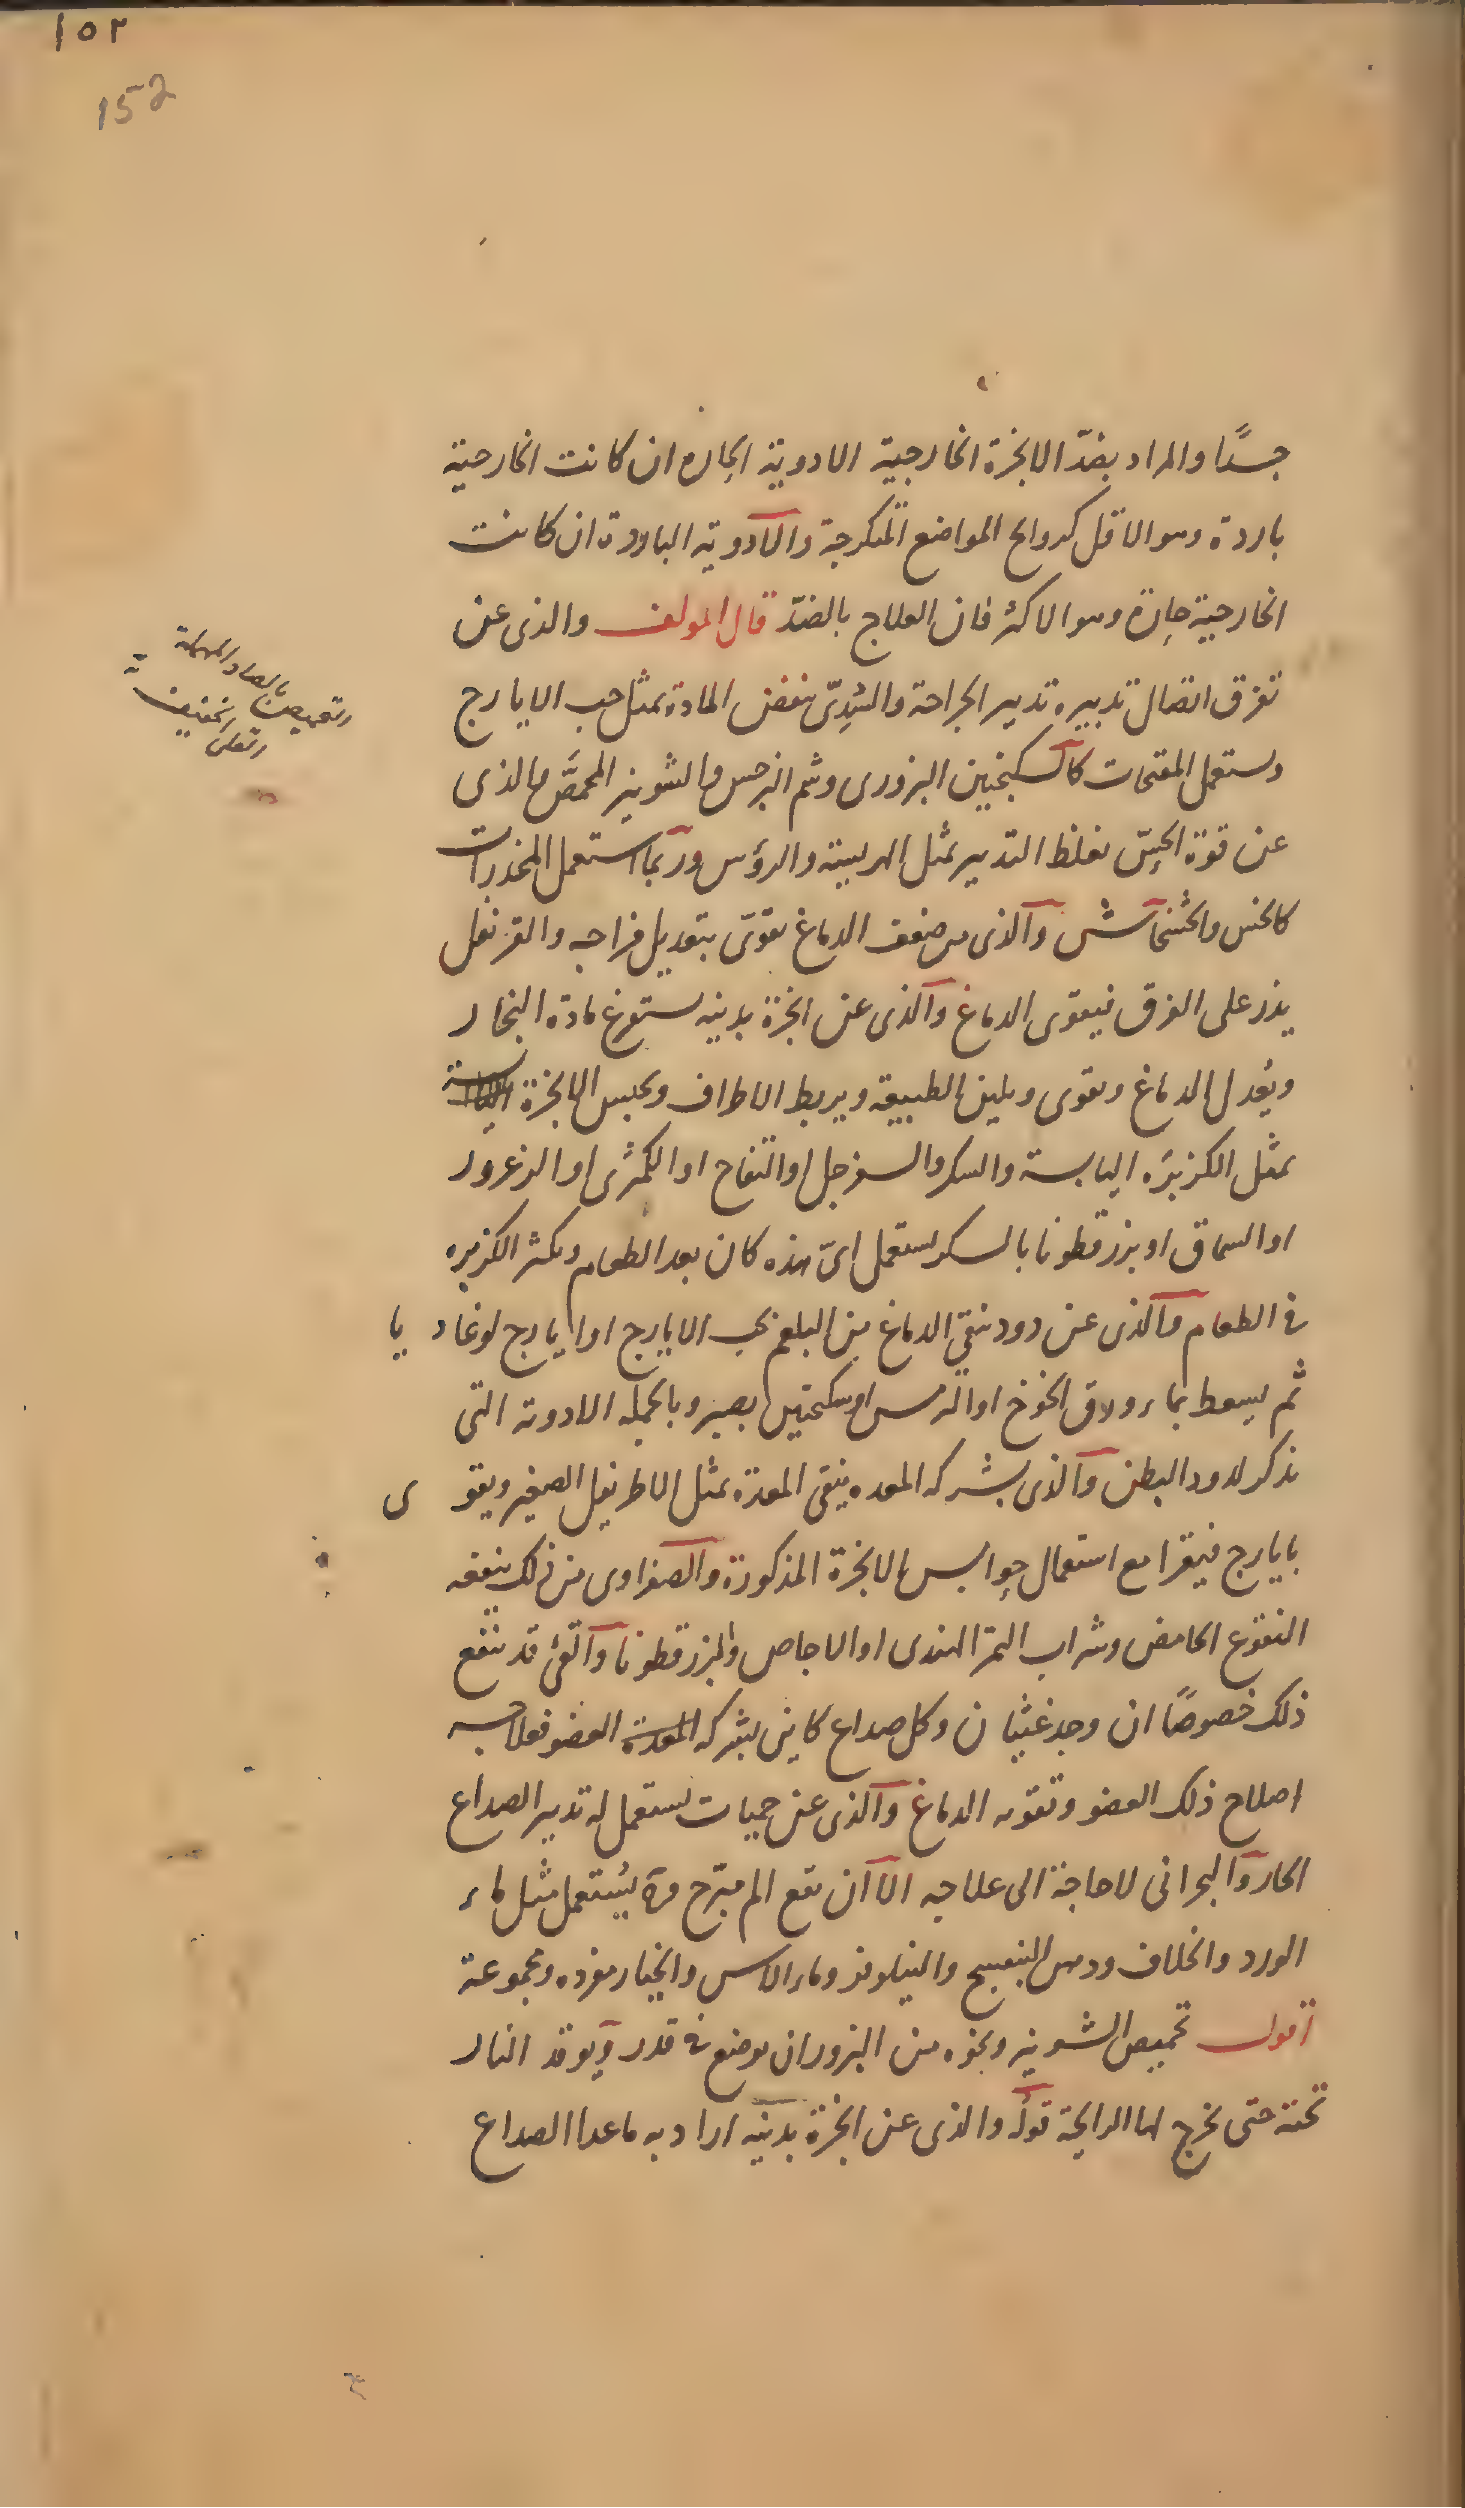 ١٥٢
152
جدًّا والمراد بضدّ الابخرة الخارجية الادوية الحاره ان كانت الخارجية
باردة وهو الاقل كروايح المواضع المتكرجة والادوية الباردة ان كانت
الخارجية حارة وهو الاكثر فان العلاج بالضدّ قال المولف والذى عن
تفرق اتصال تدبيره تدبير الجراحة والسُدِىّ بنفض المادة بمثل حب الايارج
وستعمل المفتحات كالسكنجبين البزورى وشم النرجس والشونيز المحمَّص والذى
عن قوة الحِسّ بغلظ التدبير بمثل الهريسة والرؤس وربما استعمل المخدرات
كالخس والخشخاش والذى من ضعف الدماغ يقوّى بتعديل مزاجه والقرنفل
يذر على الفرق فيقوى الدماغ والذى عن ابخرة بدنيه ستفرغ مادة البخار
ويُعدل الدماغ ويقوى ويلين الطبيعة ويربط الاطراف ويحبس الابخرة
بمثل الكزبرَه اليابسة والسكر والسفرجل او التفاح او الكمثرى او الزعرور
او السماق او بزرقطونا بالسكر يستعمل اىّ هذه كان بعد الطعام ويكثر الكزبره
فى الطعام والذى عن دود ينقى الدماغ من البلغم بحب الايارج او ايارج لوغاديا
ثم يسعط بماء ورلاق الخوخ او الترمس او سكنجبين بصبر وبالجمله الادوية التى
تذكر لدود البطن والذى بشركه المعده ينقى المعدة بمثل الاطريفل الصغير ويقوى
بايارج فيقرا مع استعمال حوابس الابخرة المذكورة والصفراوى من ذلك ينفعه
النقوع الحامض وشراب التمر الهندى او الاجاص والبزرقطونا والقئ قد ينفع
ذلك خصوصًا ان وجد غثيان وكل صداع كاين بشركه المعدة العضو فعلاجه
اصلاح ذلك العضو وتقويه الدماغ والذى عن حميات يستعمل له تدبير الصداع
الحار والبحرانى لا حاجة الى علاجه الا ان يقع الم مبرّح فح يُستعمل مثل ماء
الورد والخلاف ودهن البنفسج والنيلوفر وماء الاس والخيار مفرده ومجموعة
اقول تحميص الشونيز ونحوه من البزور ان يوضع فى قدر ويوقد النار
تحته حتى يخرج لها الرايحة قوله والذى عن ابخرة بدنيّه اراد به ماعدا الصداع
بالصاد المهملة